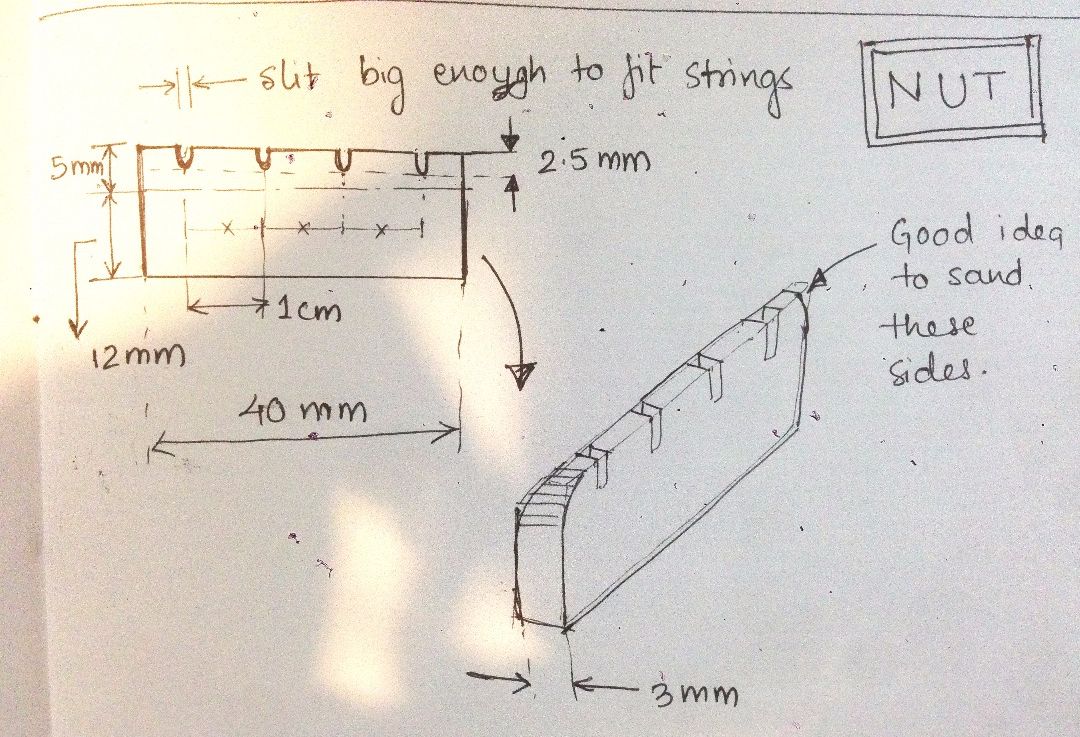 NUT
slit big enough to fit strings
5mm
12mm
1cm
x
x
x
40mm
2.5mm
3mm
Good idea
to sand
these
sides.